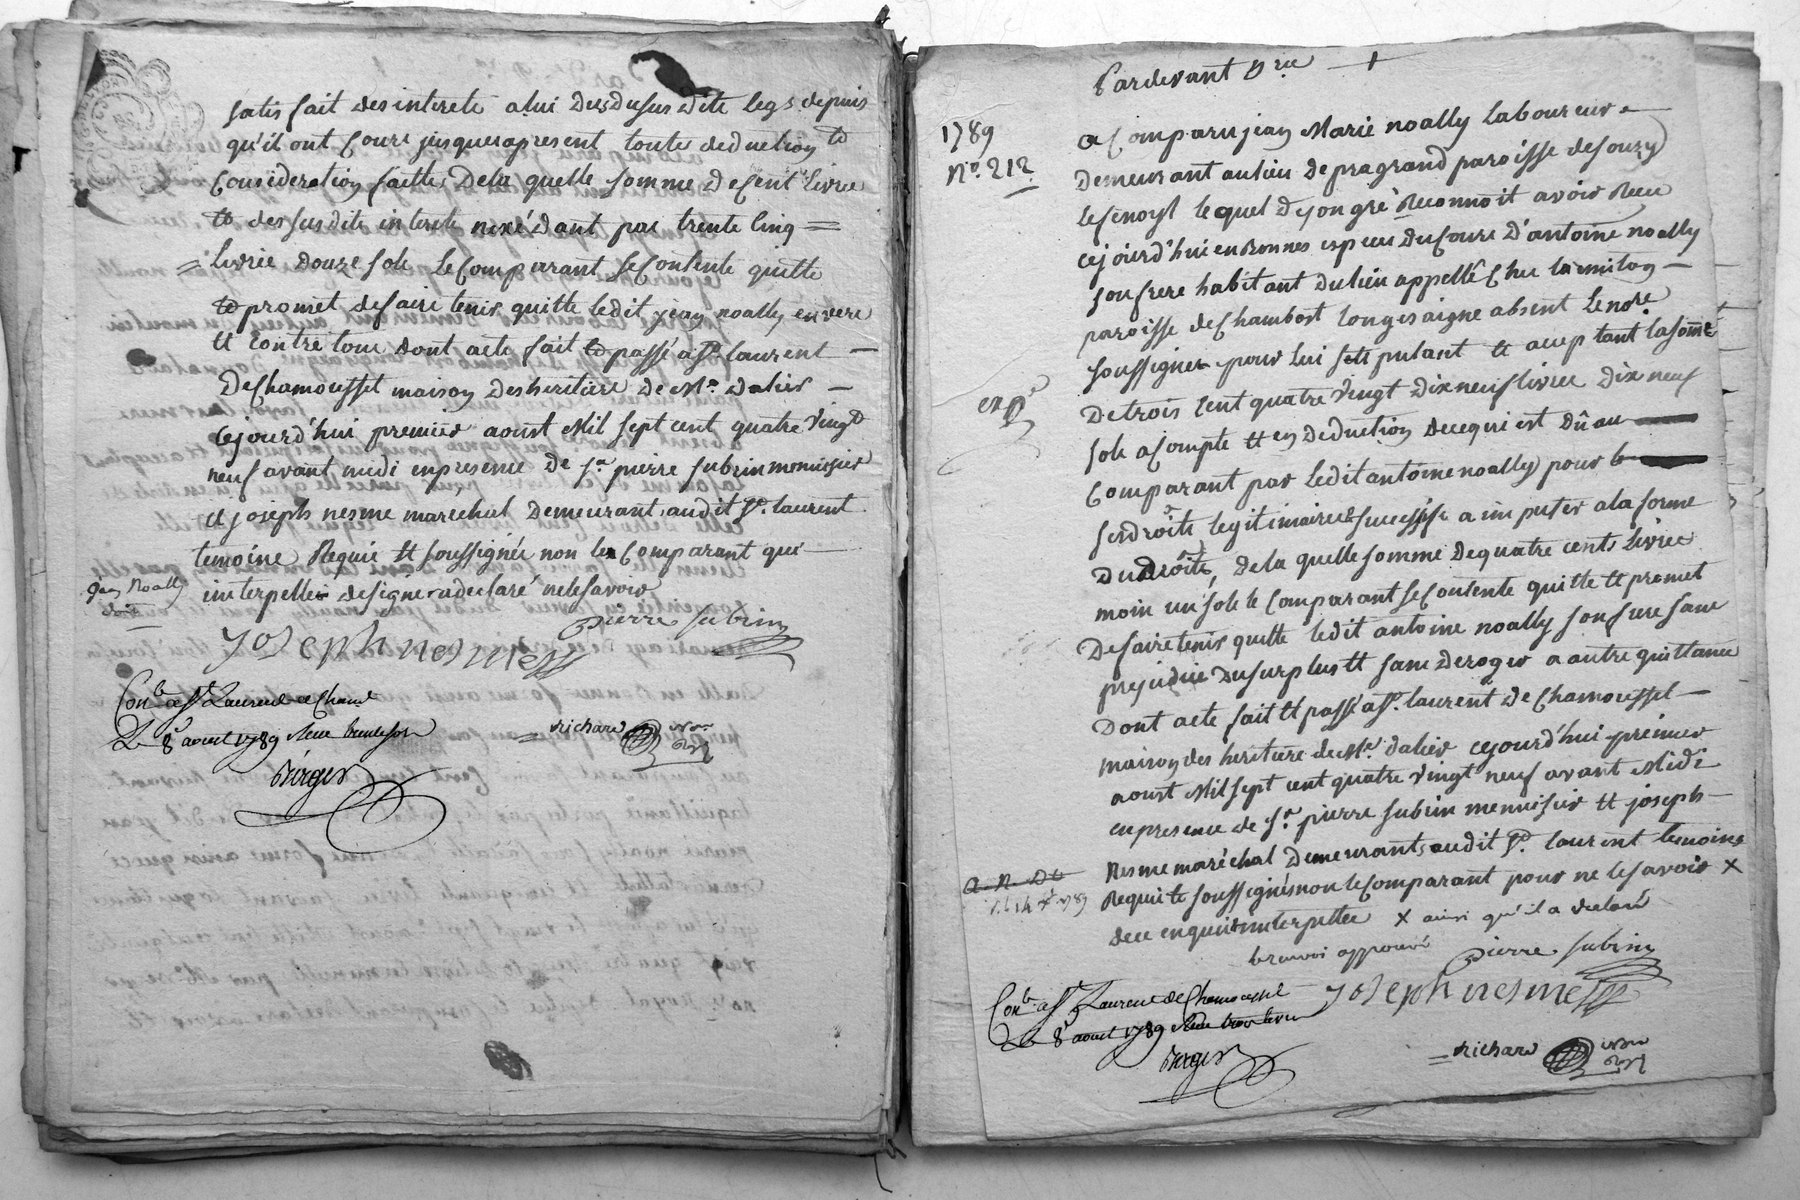 satisfait des interets a lui dus du susdite legs depuis
qu'il ont cours jusques apresent toute deduction et
consideration faitte, De la quelle somme de cent livres
et des susdits interets nexédant pas trente cinq =
= livres douze sols le comparant se contente quitte
et promet de faire tenir quitte ledit jean noally envers
et contre tous Dont acte fait et passé a St. laurent —
De Chamousset maison des heritiers de Me. dalier —
cejourd'hui premier aoust Mil sept cent quatre vingt
neuf avant midi en presense de Sr. pierre subrin menuisier
et joseph nesme marechal Demeurants audit St. laurent
temoins Requis et soussignés non le comparant qui —
interpellé de signer a declaré ne le savoir
jean Noally
pierre subrin
joseph nesme
Conlé a St. Laurent de Cham.
Le 8e aoust 1789 Recu
Berger
= richard nore
Royl
Pardevant Nre
1789
No. 212
a Comparu jean Marie noally Laboureur
demeurant au lieu de pragrand paroisse de souzy
Lesenoyt le quel De son gré Reconnoit avoir Recu
cejourd'hui en Bonnes especes Du sours D'antoine noally
son frere habitant du lieu appellé Chez la miloy —
paroisse de Chambost longesaigne absent le nore.
soussigner pour lui stipulant et aceptant la somme
De trois cent quatre vingt Dix neuf livres Dix neuf
expé
sols a compte et en Deduction de ce qui est Dû au
Comparant par ledit antoine noally pour le
ses droits legitimaires & successifs a imputer a la forme
Du droits, De la quelle somme De quatre cents Livres
moin un sol le comparant se contente quitte et promet
De faire tenir quitte ledit antoine noally son frere sans
prejudice Du surplus et sans Deroger a autre quittance
Dont acte fait et passé a St. laurent De Chamousset —
maison des heritiers de Me. dalier cejourd'hui premier
aoust Mil sept cent quatre vingt neuf avant Midi
en presence de Sr. pierre subrin menuisier et joseph —
Nesme maréchal Demeurants audit St. laurent temoins
Requis & soussignés non le comparant pour ne le savoir x
dece enquis & interpellé x ainsi qu'il a declaré
le renvoi approuvé
pierre subrin
joseph nesme
Conlé a St. Laurent de Chamousset
Le 8e aoust 1789 Recu trois livres
Berger
= richard nore
Royl